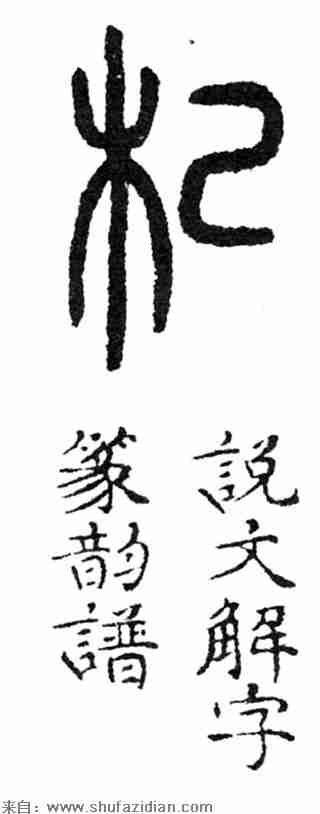 杞
說文解字
篆韵譜
来自：www.shufazidian.com